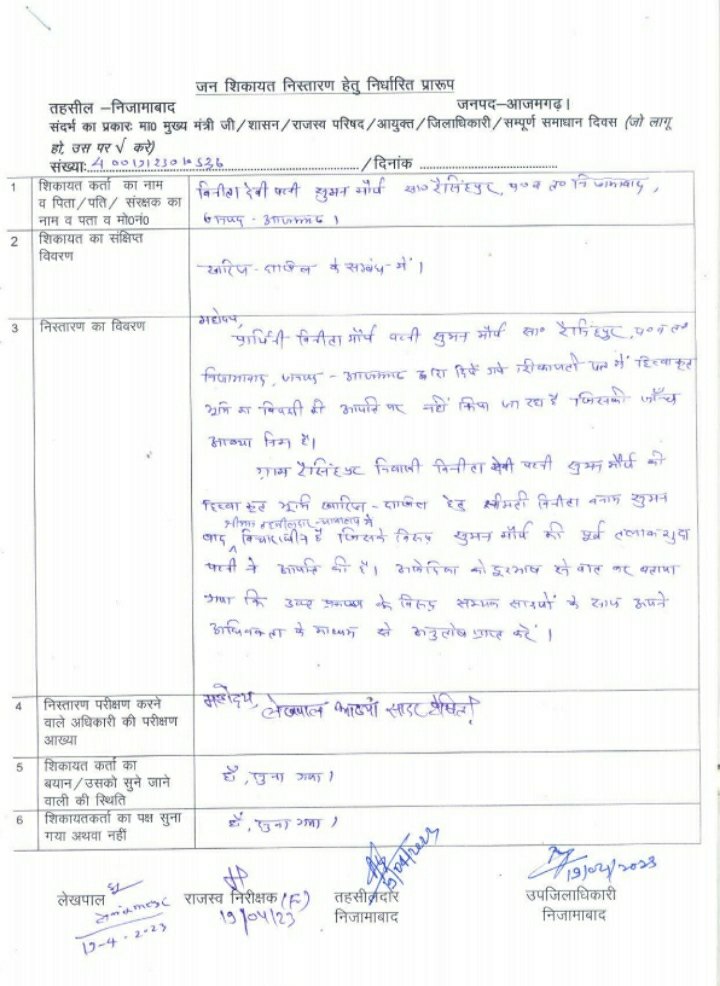 जन शिकायत निस्तारण हेतु निर्धारित प्रारूप
तहसील –निजामाबाद जनपद–आजमगढ़।
संदर्भ का प्रकारः मा0 मुख्य मंत्री जी/शासन/राजस्व परिषद/आयुक्त/जिलाधिकारी/सम्पूर्ण समाधान दिवस (जो लागू
हो, उस पर √ करें)
संख्याः /दिनांक
1 शिकायत कर्ता का नाम व पिता/पति/ संरक्षक का नाम व पता व मो0नं0
विनीता देवी पत्नी सुमन मौर्य सा० रैसिंहपुर, प०व त० निजामाबाद,
जनपद - आजमगढ़।
2 शिकायत का संक्षिप्त विवरण
खारिज - दाखिल के सम्बंध में।
3 निस्तारण का विवरण
महोदय,
प्रार्थिनी विनीता मौर्य पत्नी सुमन मौर्य सा० रैसिंहपुर, प०व त०
निजामाबाद, जनपद - आजमगढ़ द्वारा दिये गये शिकायती पत्र में हिब्बाकृत
भूमि का विपक्षी की आपत्ति पर नहीं किया जा रहा है जिसकी जाँच
आख्या निम्न है।
ग्राम रैसिंहपुर निवासी विनीता देवी पत्नी सुमन मौर्य की
हिब्बाकृत भूमि खारिज - दाखिल हेतु श्रीमती विनीता बनाम सुमन
श्रीमान तहसीलदार न्यायालय में
वाद विचाराधीन है जिसके विरुद्ध सुमन मौर्य की पूर्व तलाकशुदा
पत्नी ने आपत्ति की है। आवेदिका को दूरभाष से वार्ता कर बताया
गया कि उक्त प्रकरण के विरुद्ध सम्यक साक्ष्यों के साथ अपने
अधिवक्ता के माध्यम से अनुतोष प्राप्त करें।
4 निस्तारण परीक्षण करने वाले अधिकारी की परीक्षण आख्या
महोदय,
लेखपाल आख्या सादर प्रेषित।
5 शिकायत कर्ता का बयान/उसको सुने जाने वाली की स्थिति
हाँ, सुना गया।
6 शिकायतकर्ता का पक्ष सुना गया अथवा नहीं
हाँ, सुना गया।
लेखपाल राजस्व निरीक्षक तहसीलदार उपजिलाधिकारी
19-4-2023 19/04/23 निजामाबाद निजामाबाद
19/04/2023 19/04/2023